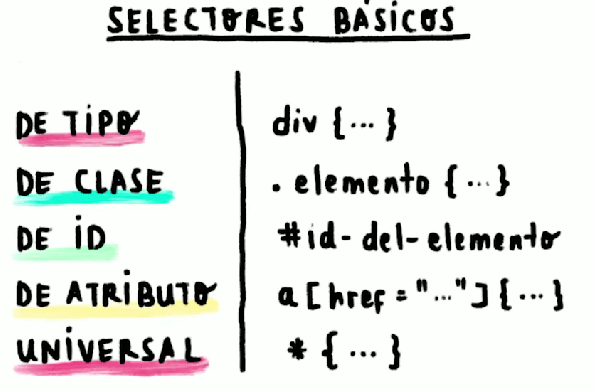 SELECTORES BÁSICOS
DE TIPO div {...}
DE CLASE .elemento {...}
DE ID #id-del-elemento
DE ATRIBUTO a[href="..."]{...}
UNIVERSAL * {...}